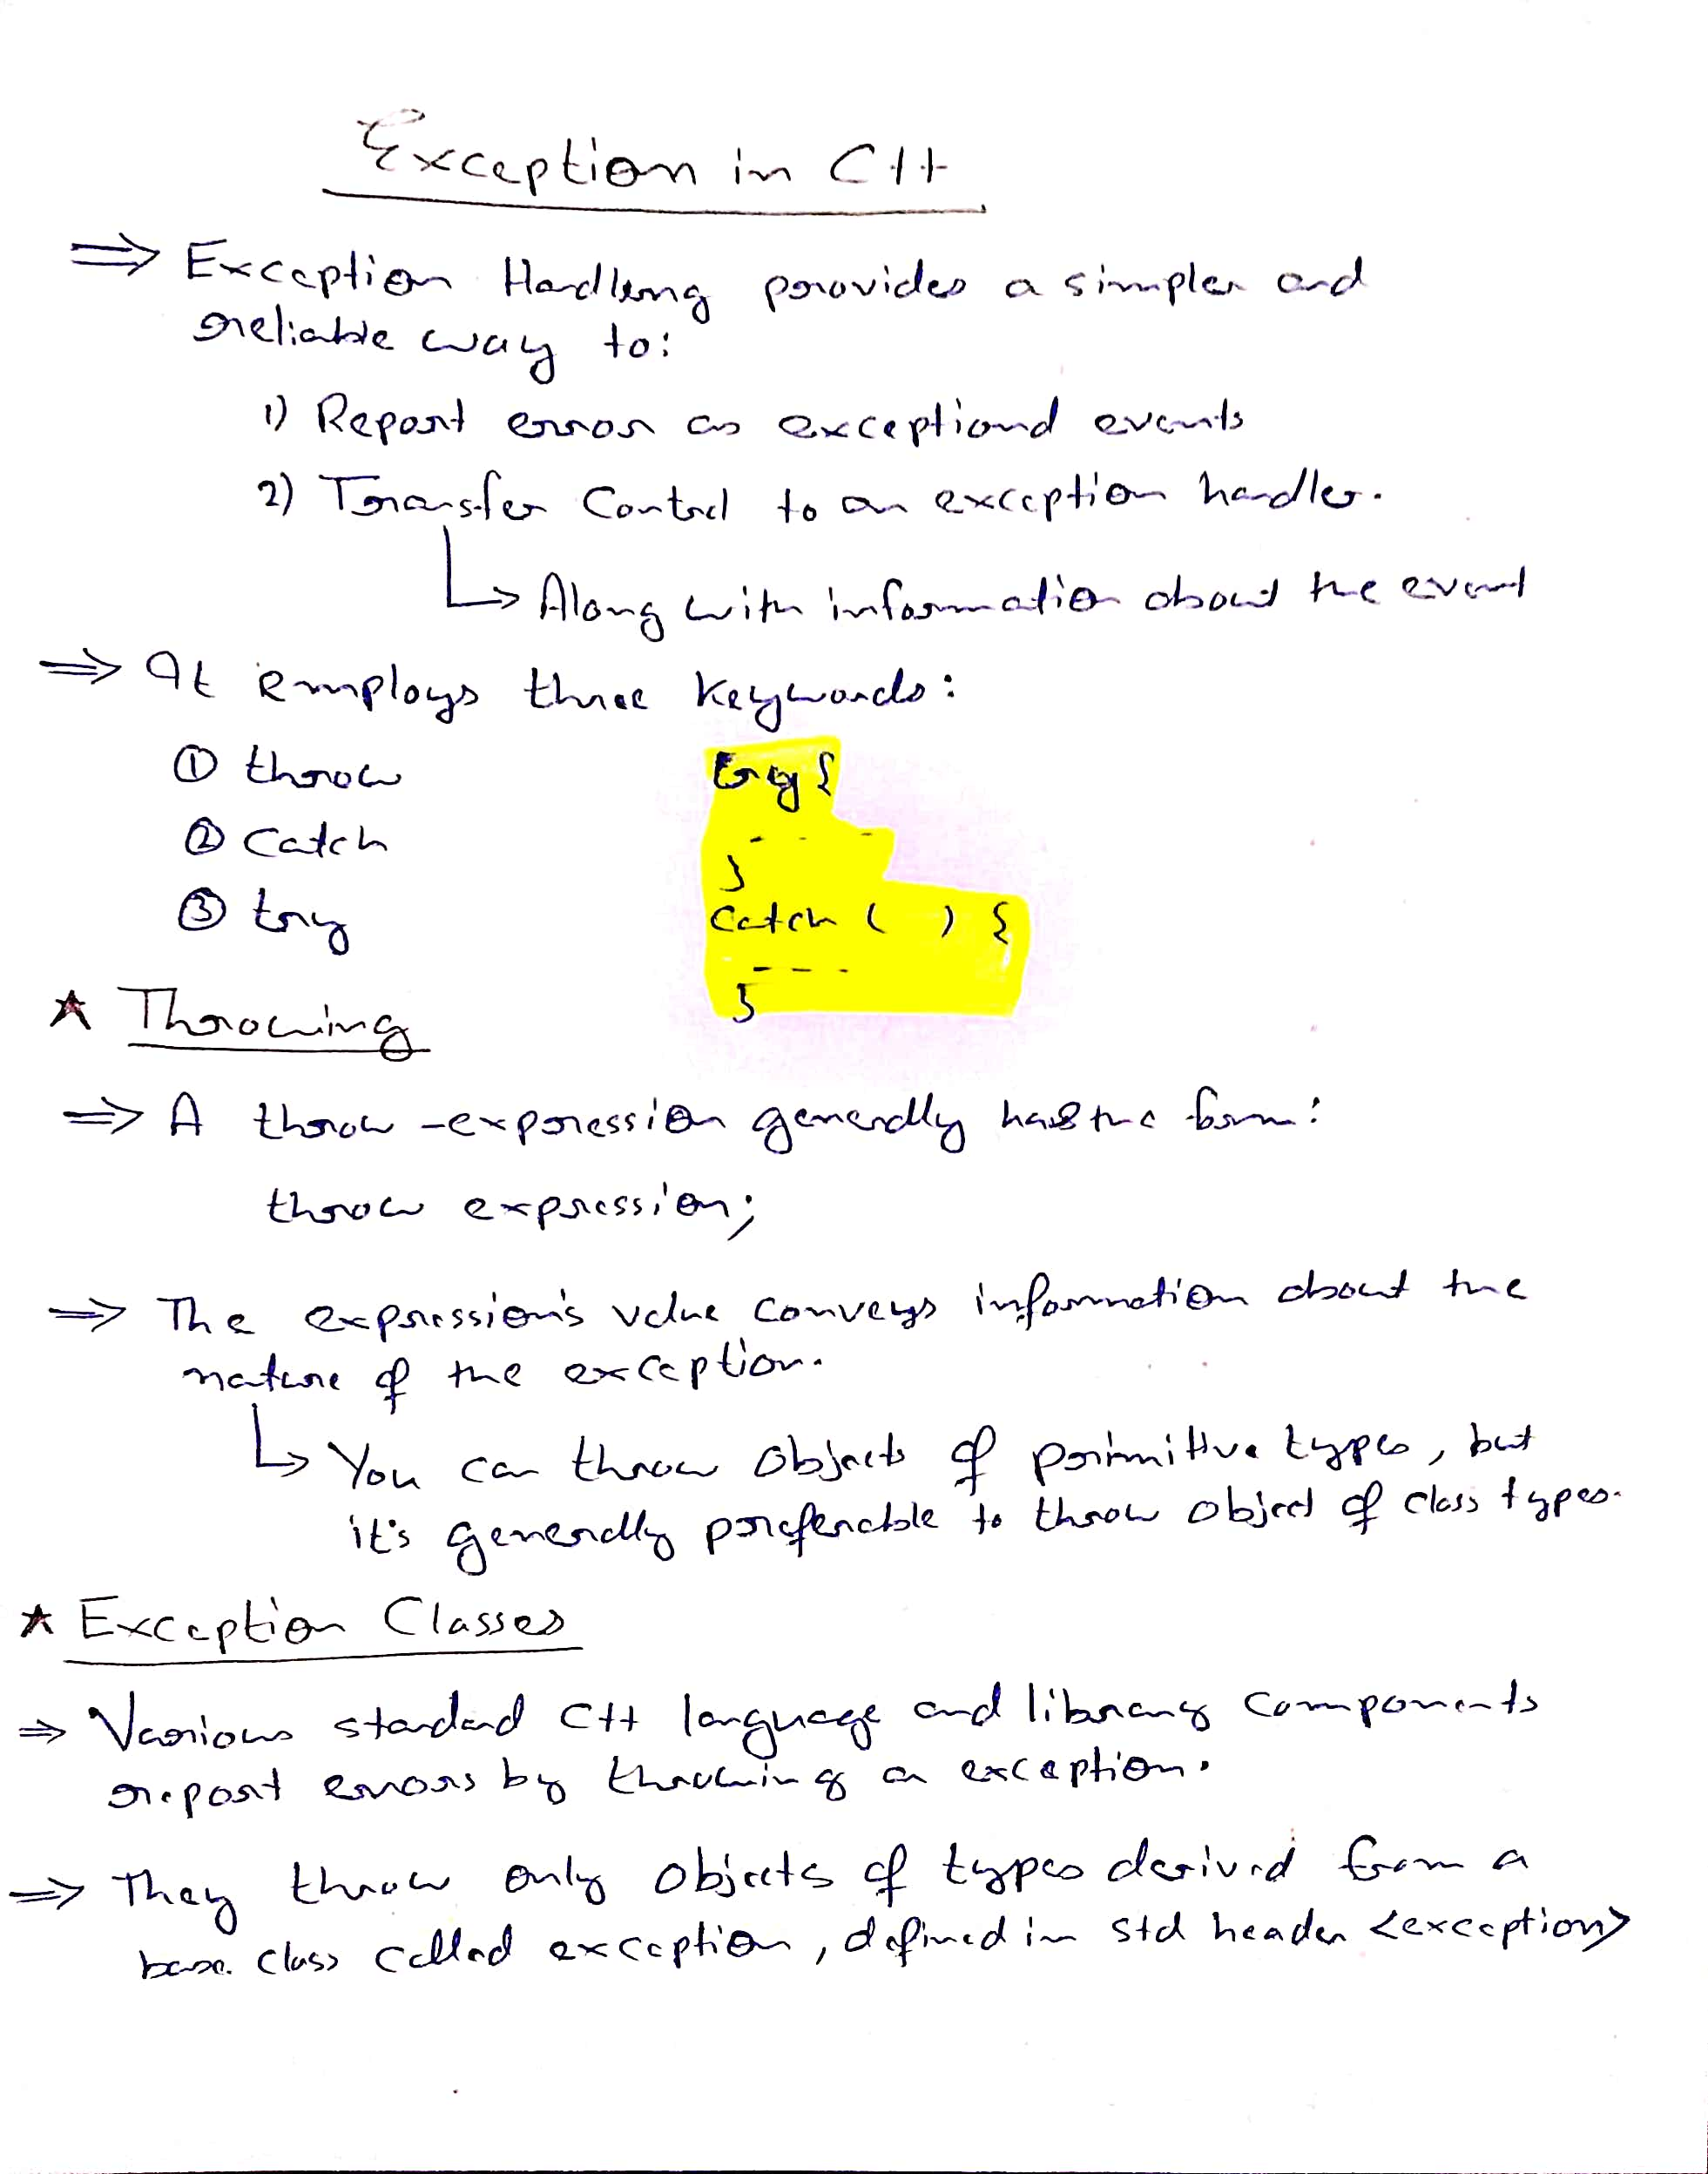 Exception in C++
⇒ Exception Handling provides a simpler and
reliable way to:
1) Report error as exceptional events
2) Transfer Control to an exception handler.
↳ Along with information about the event
⇒ It employs three keywords:
① throw
② Catch
③ try
try {
- - -
}
Catch ( ) {
- - - -
}
★ Throwing
⇒ A throw-expression generally has the form:
throw expression;
⇒ The expression's value conveys information about the
nature of the exception.
↳ You can throw objects of primitive types, but
it's generally preferable to throw object of class types.
★ Exception Classes
⇒ Various standard C++ language and library components
report errors by throwing an exception.
⇒ They throw only objects of types derived from a
base class called exception, defined in std header <exception>